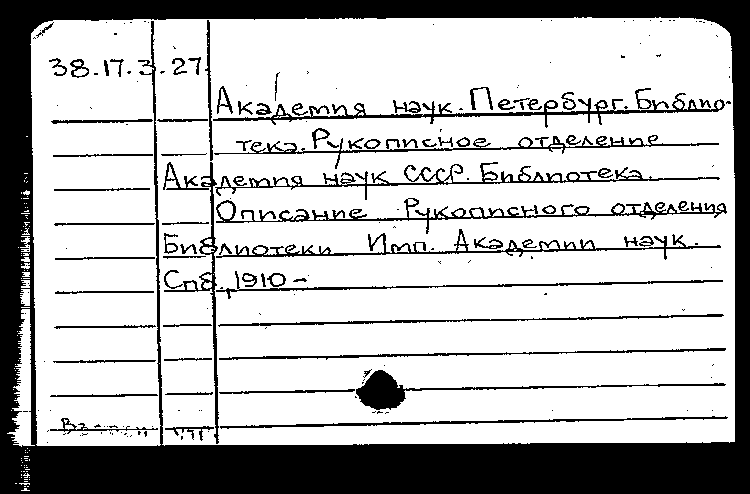 38.17.3.27.
Академия наук. Петербург. Библио-
тека. Рукописное отделение
Академия наук СССР. Библиотека.
Описание Рукописного отделения
Библиотеки Имп. Академии наук.
Спб., 1910 –